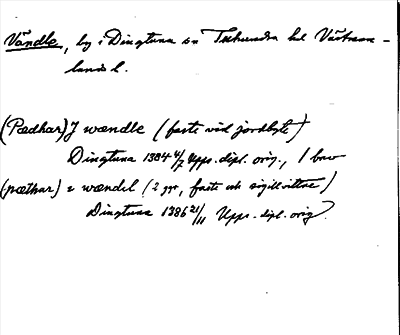 Vändle, by i Dingtuna sn Tuhundra hd Västman-
lands l.
(Pædhar) J wændle (faste vid jordbyte)
Dingtuna 1384 4/7 Upps. dipl. orig., 1 bev
(pæthar) i wændil (2 ggr, faste och sigillvittne)
Dingtuna 1386 21/11 Upps. dipl. orig.